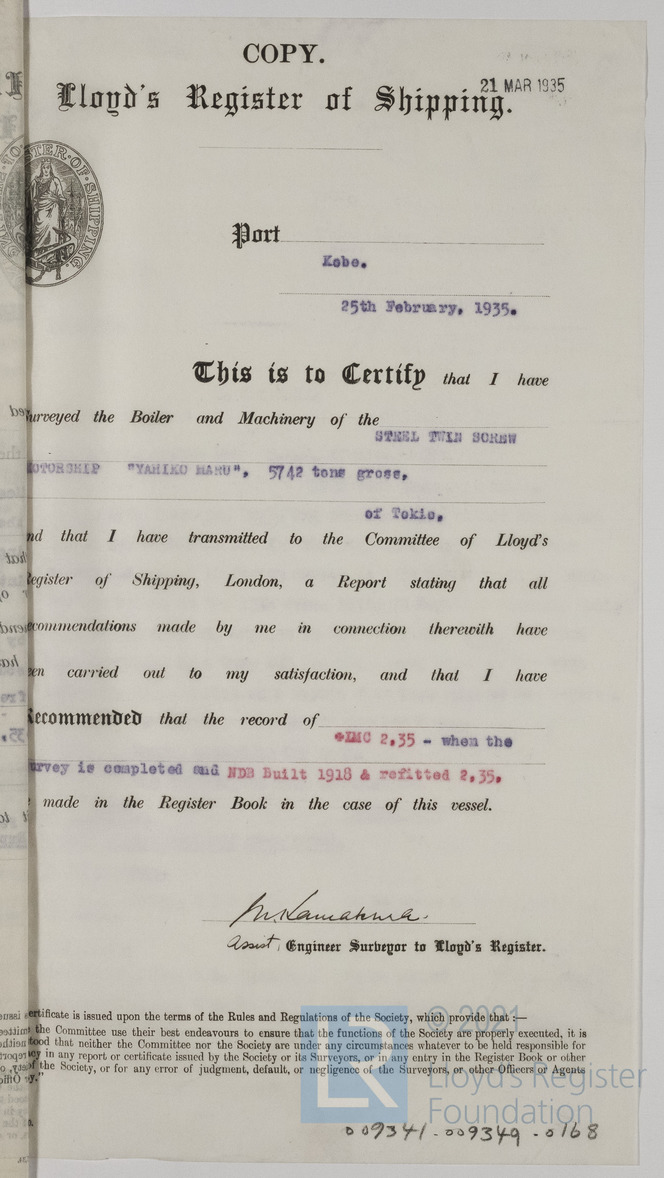 COPY.
21 MAR 1935
Lloyd's Register of Shipping.
STER·OF·SHIPPING.
Port
Kobe.
25th February, 1935.
This is to Certify that I have
urveyed the Boiler and Machinery of the
STEEL TWIN SCREW
OTORSHIP "YAHIKO MARU", 5742 tons gross,
of Tokio,
nd that I have transmitted to the Committee of Lloyd's
egister of Shipping, London, a Report stating that all
ecommendations made by me in connection therewith have
een carried out to my satisfaction, and that I have
Recommended that the record of
LMC 2,35 - when the
urvey is completed and NDB Built 1918 & refitted 2,35,
made in the Register Book in the case of this vessel.
Assist. Engineer Surveyor to Lloyd's Register.
ertificate is issued upon the terms of the Rules and Regulations of the Society, which provide that :—
the Committee use their best endeavours to ensure that the functions of the Society are properly executed, it is
tood that neither the Committee nor the Society are under any circumstances whatever to be held responsible for
cy in any report or certificate issued by the Society or its Surveyors, or in any entry in the Register Book or other
of the Society, or for any error of judgment, default, or negligence of the Surveyors, or other Officers or Agents
y."
LR
© 2021
Lloyd's Register
Foundation
009341-009349-0168